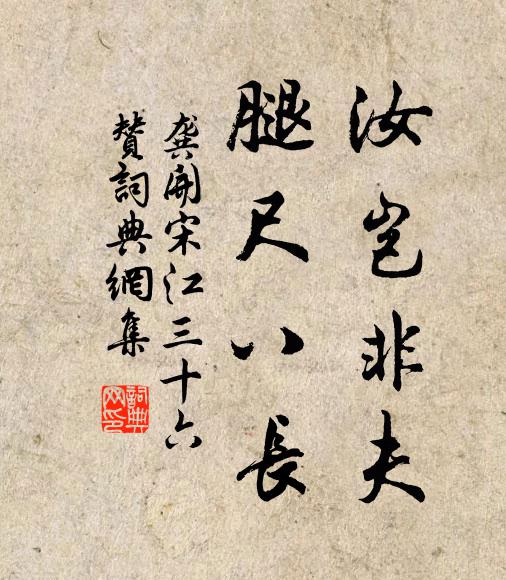 汝豈非夫
腿尺八長
龔開宋江三十六
贊詞典網集
詞典
网印